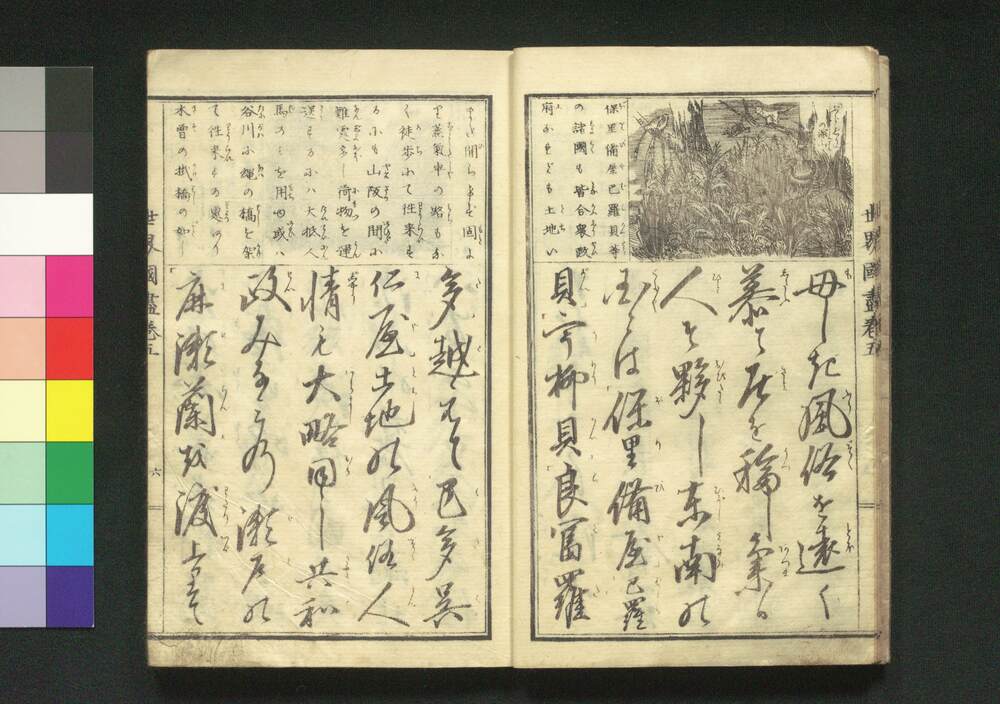 世界國盡巻五
保里備屋巴羅貝等
の諸國も皆合衆政
府なれども土地い
母しき風俗を遠く
慕て居を移し氣る
人も夥し東南の
国々は保里備屋巴羅
貝宇柳貝良富羅
まだ開らけず國よ
り蒸氣車の路もな
く徒歩にて往来す
るにも山阪の間に
難處多し荷物を運
送するには大抵人
馬のみを用ゆ或ハ
谷川に縄の橋を架
て往来する處の
木曽の掛橋の如し
多越えて巴多呉
仁屋土地の風俗人
情も大略同し共和
政みなみの瀬戸の
麻瀬蘭を渡りて
世界國盡巻五
六